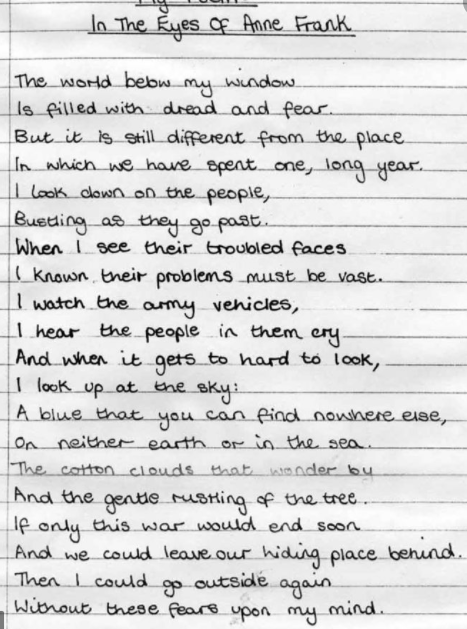 My Poem
In The Eyes Of Anne Frank
The world below my window
Is filled with dread and fear.
But it is still different from the place
In which we have spent one, long year.
I look down on the people,
Bustling as they go past.
When I see their troubled faces
I known their problems must be vast.
I watch the army vehicles,
I hear the people in them cry
And when it gets to hard to look,
I look up at the sky:
A blue that you can find nowhere else,
On neither earth or in the sea.
The cotton clouds that wonder by
And the gentle rustling of the tree.
If only this war would end soon
And we could leave our hiding place behind.
Then I could go outside again
Without these fears upon my mind.